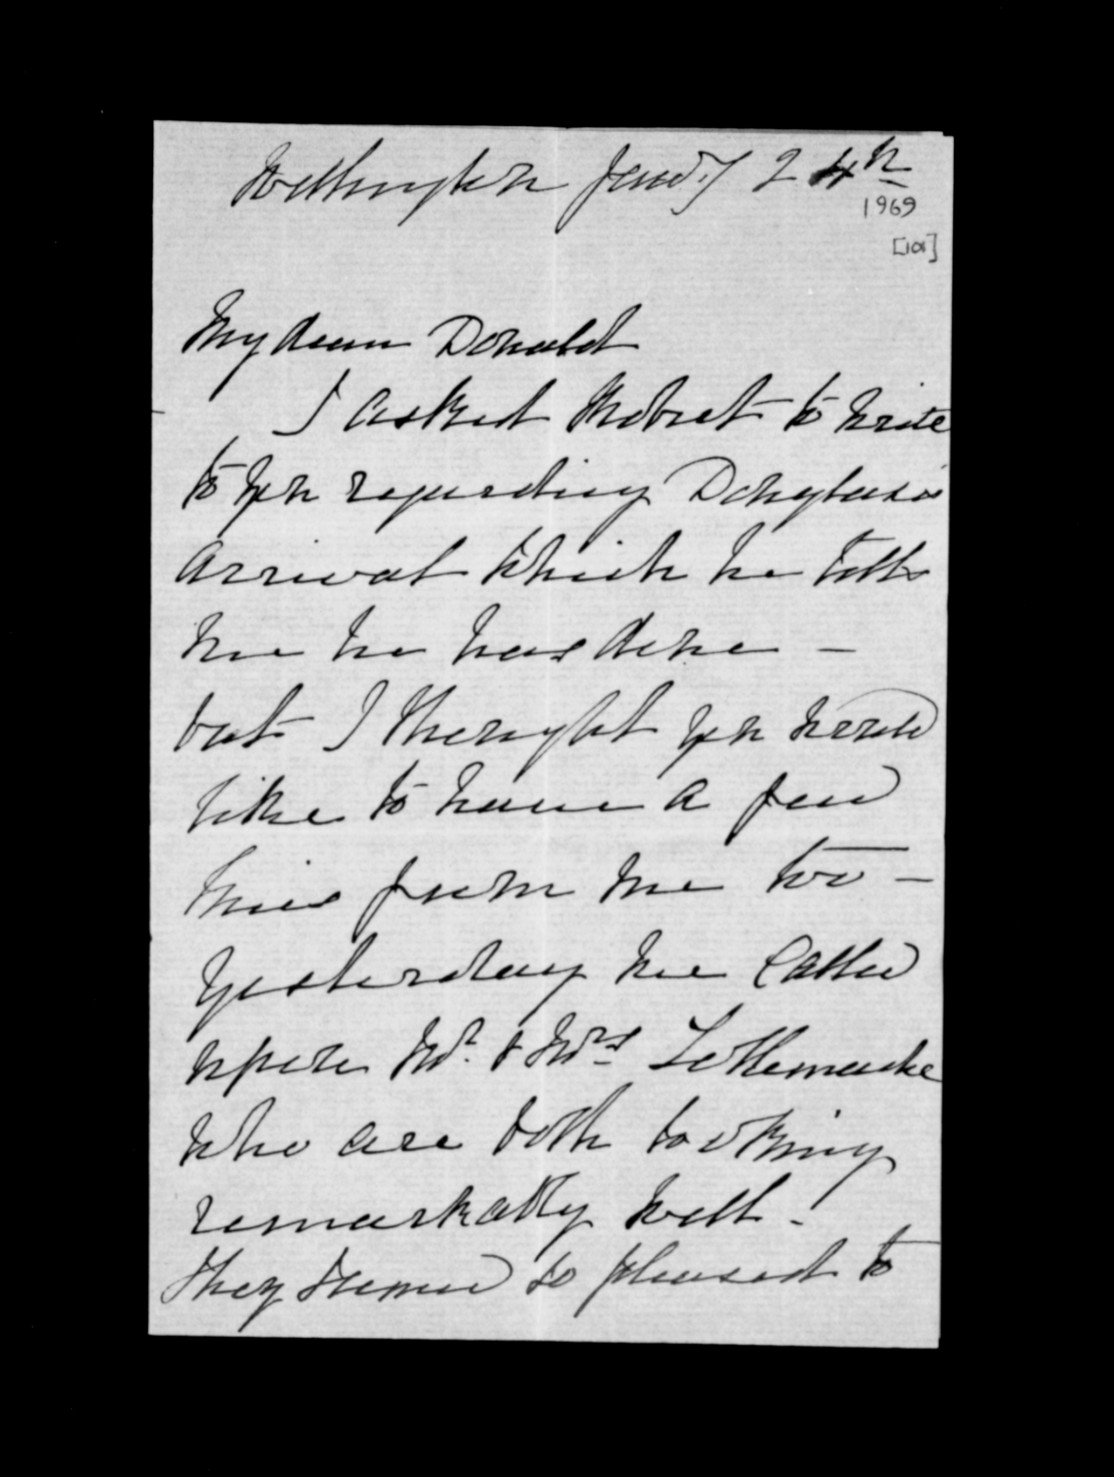 Wellington Jany 24th
1969
[101]
My dear Donald
I asked Robert to write
to you regarding Douglas's
arrival which he tells
me he has done -
but I thought you would
like to have a few
lines from me too -
Yesterday we called
upon Mr. & Mrs
who are both looking
remarkably well -
they seemed so pleased to